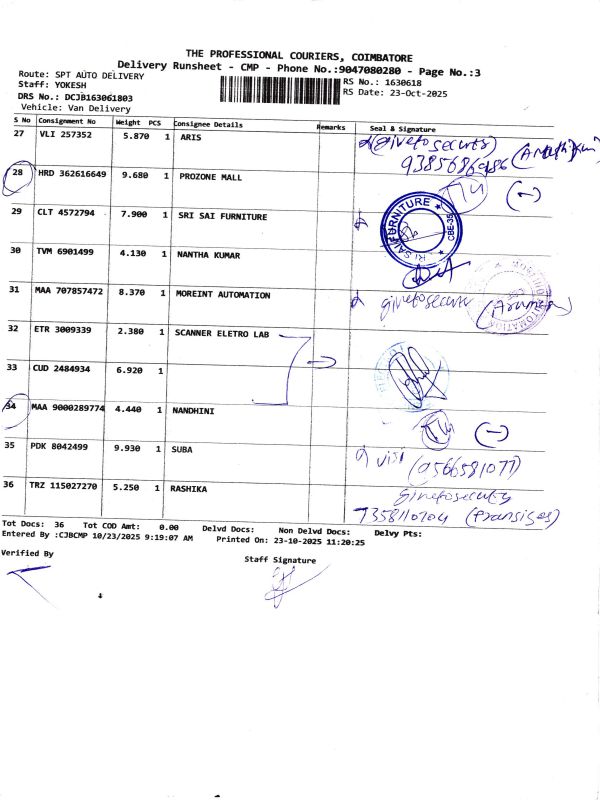 THE PROFESSIONAL COURIERS, COIMBATORE
Delivery Runsheet - CMP - Phone No.:9047080280 - Page No.:3
Route: SPT AUTO DELIVERY
RS No.: 1630618
Staff: YOKESH
RS Date: 23-Oct-2025
DRS No.: DCJB163061803
Vehicle: Van Delivery
S No Consignment No Weight PCS Consignee Details Remarks Seal & Signature
27 VLI 257352 5.870 1 ARIS
9385686986
28 HRD 362616649 9.680 1 PROZONE MALL (-)
29 CLT 4572794 7.900 1 SRI SAI FURNITURE
SRI SAI FURNITURE CBE-35
30 TVM 6901499 4.130 1 NANTHA KUMAR
31 MAA 707857472 8.370 1 MOREINT AUTOMATION
AUTOMATION
32 ETR 3009339 2.380 1 SCANNER ELETRO LAB
33 CUD 2484934 6.920 1
34 MAA 9000289774 4.440 1 NANDHINI (-)
35 PDK 8042499 9.930 1 SUBA
36 TRZ 115027270 5.250 1 RASHIKA
7358110704
Tot Docs: 36 Tot COD Amt: 0.00 Delvd Docs: Non Delvd Docs: Delvy Pts:
Entered By :CJBCMP 10/23/2025 9:19:07 AM Printed On: 23-10-2025 11:20:25
Verified By
Staff Signature